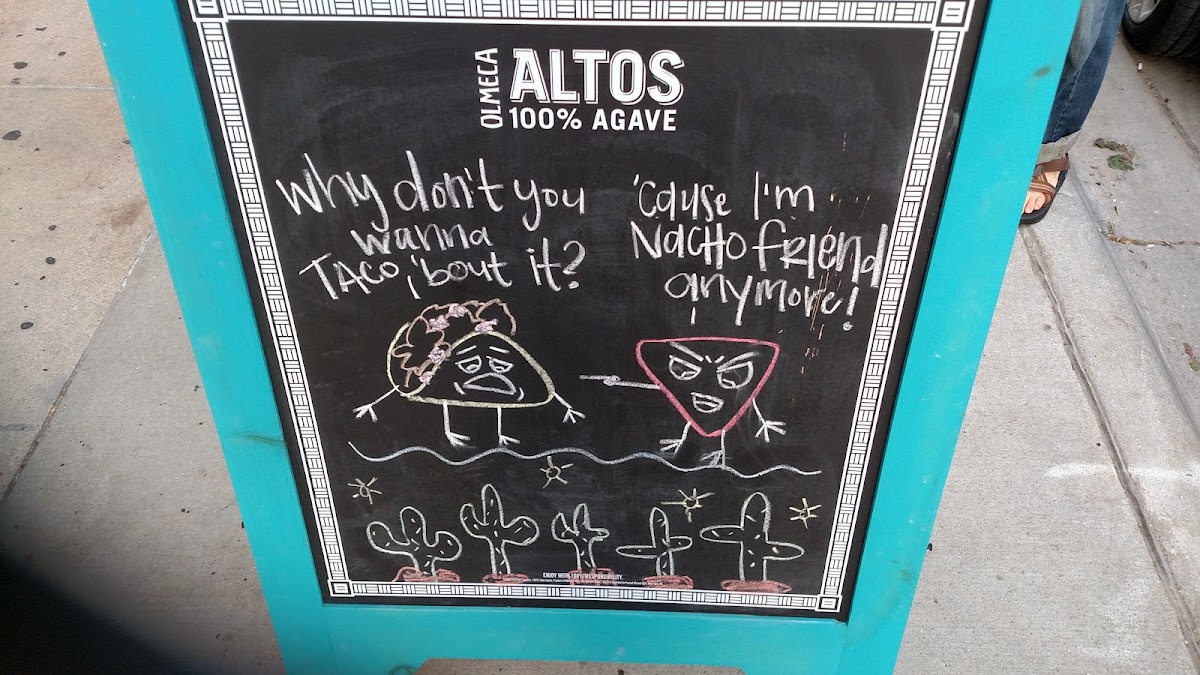 OLMECA
ALTOS
100% AGAVE
Why don't you
wanna
TACO 'bout it?
'Cause I'm
NACHO fRIEND
anymore!
ENJOY WITH RESPONSIBILITY.